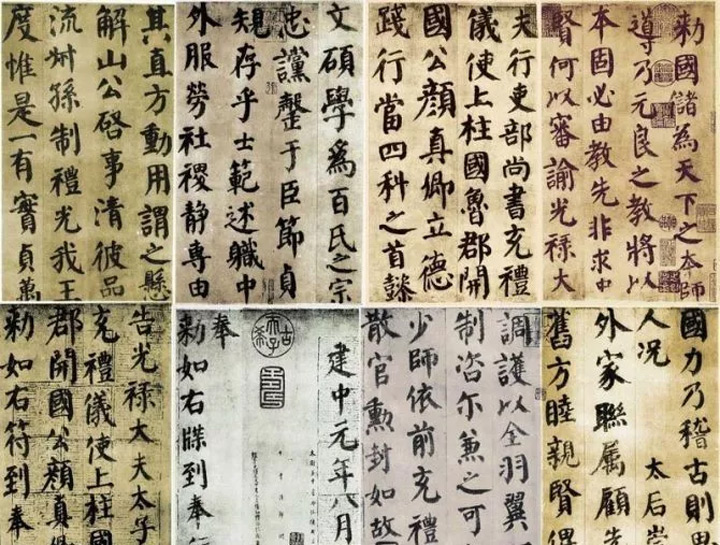 勑國儲為天下之本師
導乃元良之教將以
本固必由教先非求
賢何以審諭光祿大
夫行吏部尚書充禮
儀使上柱國魯郡開
國公顏真卿立德
踐行當四科之首懿
文碩學爲百氏之宗
忠讜罄于臣節貞
規存乎士範述職中
外服勞社稷靜專由
其直方動用謂之懸
解山公啓事清彼品
流叔孫制禮光我王
度惟是一有實貞萬
國力乃稽古則思
人況 太后崇
外家聯属顧先
舊方睦親賢俾
調護以全羽翼
制咨尔兼之可
少師依前充禮
散官勳封如故
建中元年八月
古希天子
奉
勑如右牒到奉行
告光祿大夫太子
充禮儀使上柱國
郡開國公顏真卿
勑如右符到奉